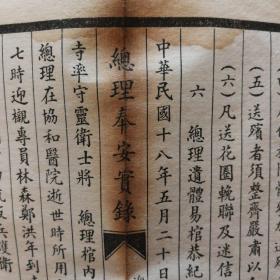 （五）送殯者須整齊嚴肅以
（六）凡送花圈輓聯及迷信
總理奉安實錄
六　總理遺體易棺恭紀
中華民國十八年五月二十日
寺率守靈衛士將　總理棺內
總理在協和醫院逝世時所用
七時迎櫬專員林森鄭洪年到